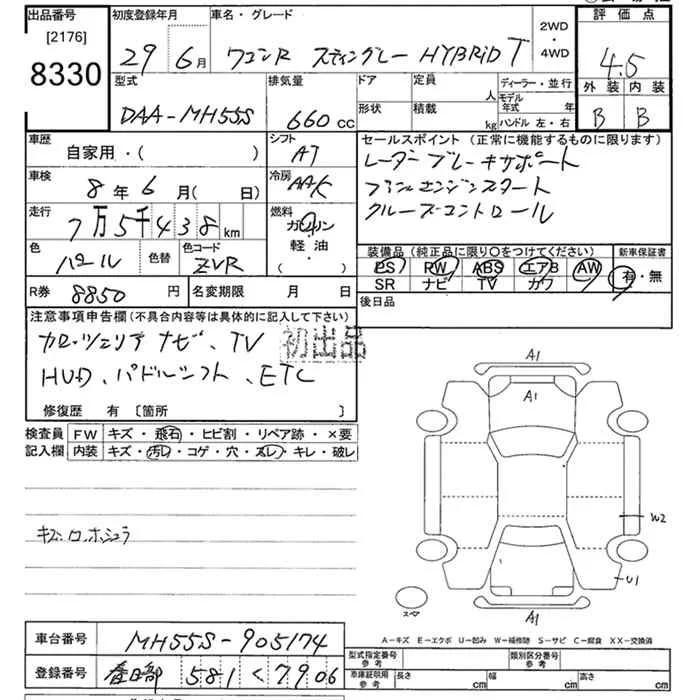 出品番号 初度登録年月 車名・グレード 2WD・4WD 評価点
[2176]
8330 29年 6月 ワゴンR スティングレー HYBRID T 4.5
型式 排気量 ドア 定員 人 ディーラー・並行 外装 内装
DAA-MH55S 660cc 形状 積載 kg モデル年式 年 ハンドル 左・右 B B
車歴 自家用・( ) シフト AT
セールスポイント (正常に機能するものに限ります)
レーダーブレーキサポート
プッシュエンジンスタート
クルーズコントロール
車検 8年 6月(日) 冷房 AAC
走行 7万5千438km 燃料 ガソリン・軽油・( )
色 パール 色替 色コード ZVR
装備品 (純正品に限り○をつけてください) 新車保証書
PS PW ABS エアB AW 有・無
SR ナビ TV カワ
R券 8850円 名変期限 月 日 後日品
注意事項申告欄(不具合内容等は具体的に記入して下さい)
カロッツェリア ナビ、TV
HUD、パドルシフト、ETC
初出品
修復歴 有 〔箇所 〕
検査員 FW キズ・飛石・ヒビ割・リペア跡・×要
記入欄 内装 キズ・汚レ・コゲ・穴・スレ・キレ・破レ
A1
A1
W2
キズ
U1
スペア
A1
A-キズ E-エクボ U-凹み W-補修跡 S-サビ C-腐食 XX-交換済
車台番号 MH55S-905174
型式指定番号 参考 類別区分番号 参考
登録番号 春日部 581 く 7906
車庫証明用 参考 長さ cm 幅 cm 高さ cm